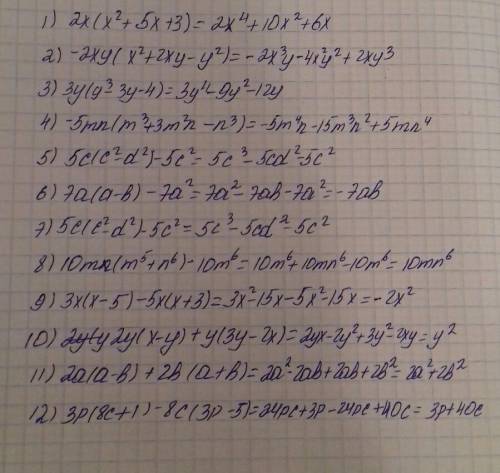 1) 2x(x² + 5x + 3) = 2x⁴ + 10x² + 6x
2) -2xy(x² + 2xy - y²) = -2x³y - 4x²y² + 2xy³
3) 3y(y³ - 3y - 4) = 3y⁴ - 9y² - 12y
4) -5mn(m³ + 3m²n - n³) = -5m⁴n - 15m³n² + 5mn⁴
5) 5c(c² - d²) - 5c² = 5c³ - 5cd² - 5c²
6) 7a(a-b) - 7a² = 7a² - 7ab - 7a² = -7ab
7) 5c(c² - d²) - 5c² = 5c³ - 5cd² - 5c²
8) 10mn(m⁵ + n⁶) - 10m⁶ = 10m⁶ + 10mn⁶ - 10m⁶ = 10mn⁶
9) 3x(x - 5) - 5x(x + 3) = 3x² - 15x - 5x² - 15x = -2x²
10) 2y(x - y) + y(3y - 2x) = 2yx - 2y² + 3y² - 2xy = y²
11) 2a(a - b) + 2b(a + b) = 2a² - 2ab + 2ab + 2b² = 2a² + 2b²
12) 3p(8c + 1) - 8c(3p - 5) = 24pc + 3p - 24pc + 40c = 3p + 40c